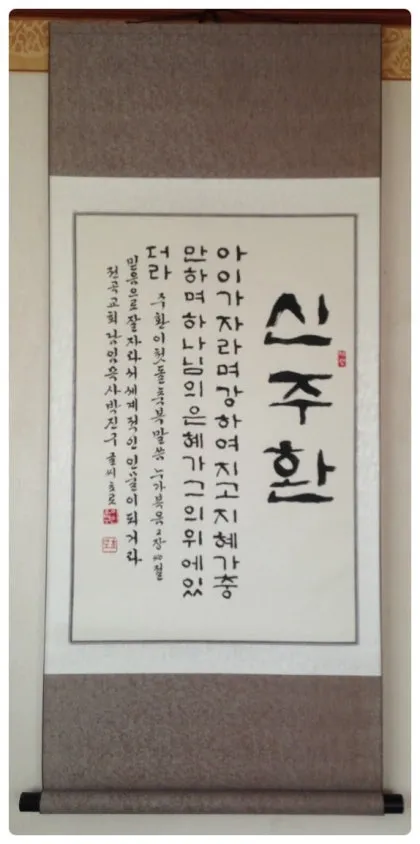 신주환
아이가자라며강하여지고지혜가충
만하며하나님의은혜가그의위에있
더라 주환이첫돌축복말씀 누가복음2장40절
믿음으로잘자라서세계적인인물이되거라
전곡교회담임목사박진구